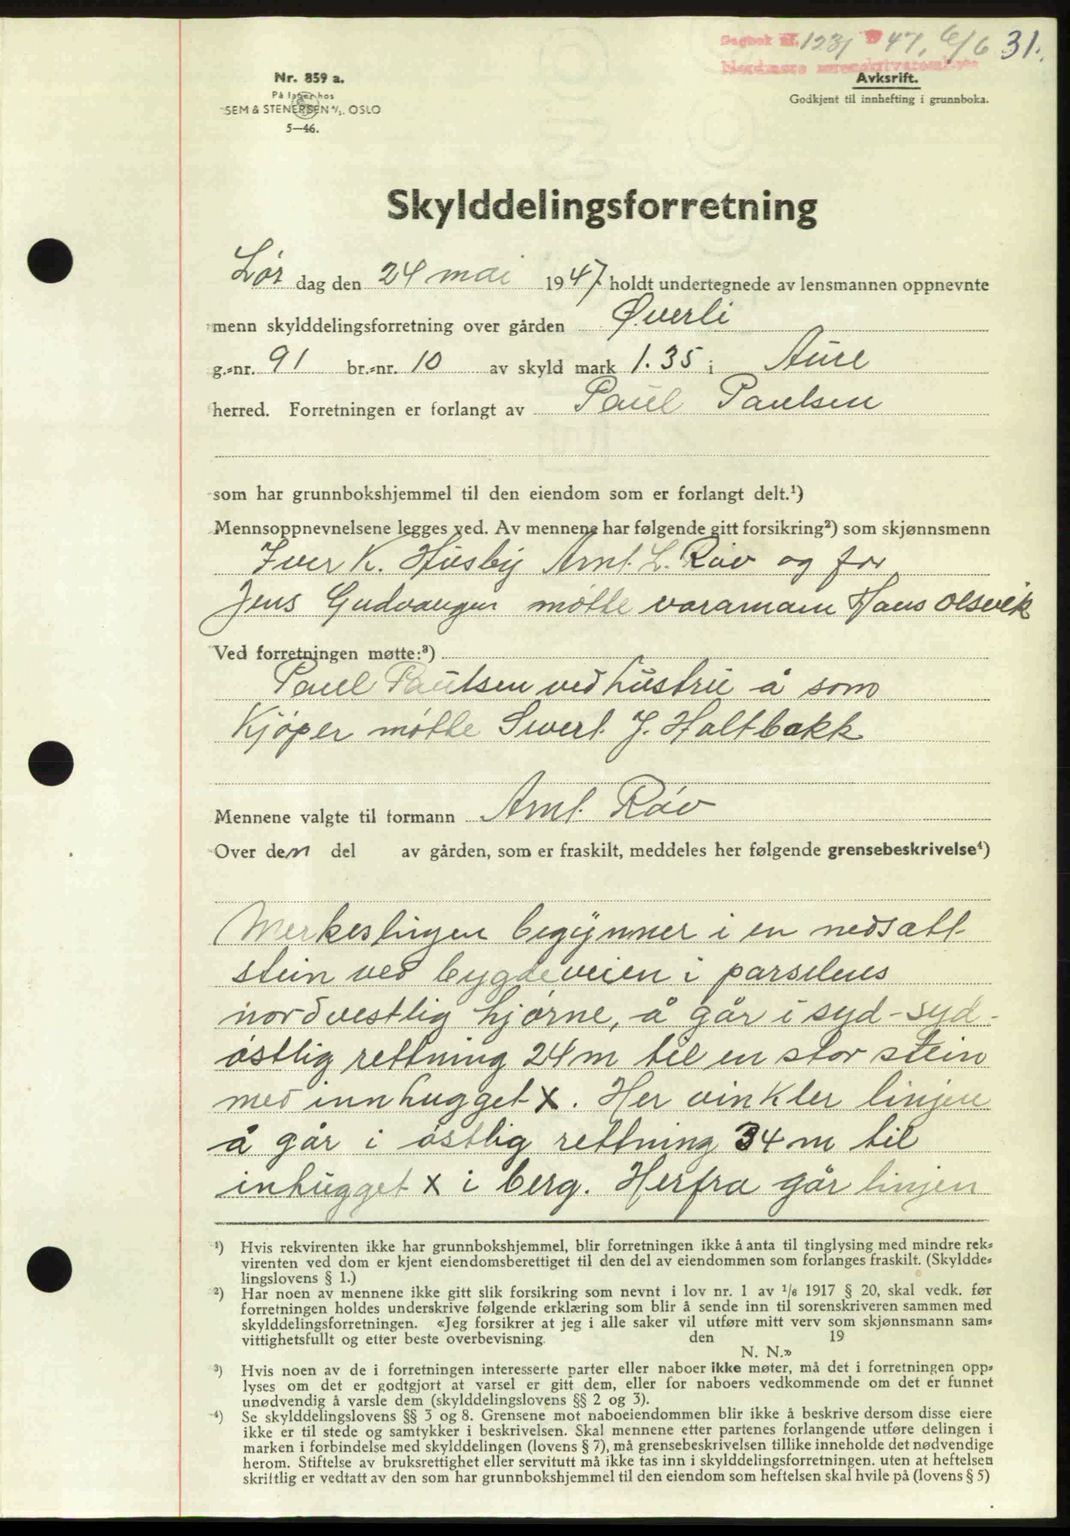 Dagbok nr. 1231 1947, 6/6 31.
Nordmøre sorenskriverembete
Nr. 859 a.
På lager hos
SEM & STENERSEN A/S. OSLO
5—46.
Avksrift.
Godkjent til innhefting i grunnboka.
Skylddelingsforretning
Lør dag den 24 mai 1947 holdt undertegnede av lensmannen oppnevnte
menn skylddelingsforretning over gården Øverli
g.-nr. 91 br.-nr. 10 av skyld mark 1.35 i Aure
herred. Forretningen er forlangt av Paul Paulsen
som har grunnbokshjemmel til den eiendom som er forlangt delt.¹)
Mennsoppnevnelsene legges ved. Av mennene har følgende gitt forsikring²) som skjønnsmenn
Iver K. Husby Arnt. L. Røv og for
Jens Gudvangen møtte varamann Hans Olsvik
Ved forretningen møtte:³)
Paul Paulsen ved hustru å som
Kjøper møtte Sivert J. Holtbakk
Mennene valgte til formann Arnt. Røv
Over den del av gården, som er fraskilt, meddeles her følgende grensebeskrivelse⁴)
Merkeslinjen begynner i en nedsatt
stein ved bygdeveien i parselens
nordvestlig hjørne, å går i syd-syd-
østlig rettning 24 m til en stor stein
med innhugget X. Her vinkler linjen
å går i østlig rettning 34 m til
inhugget X i berg. Herfra går linjen
¹) Hvis rekvirenten ikke har grunnbokshjemmel, blir forretningen ikke å anta til tinglysing med mindre rek-
virenten ved dom er kjent eiendomsberettiget til den del av eiendommen som forlanges fraskilt. (Skyldde-
lingslovens § 1.)
²) Har noen av mennene ikke gitt slik forsikring som nevnt i lov nr. 1 av 1/6 1917 § 20, skal vedk. før
forretningen holdes underskrive følgende erklæring som blir å sende inn til sorenskriveren sammen med
skylddelingsforretningen. «Jeg forsikrer at jeg i alle saker vil utføre mitt verv som skjønnsmann sam-
vittighetsfullt og etter beste overbevisning. den 19
N. N.»
³) Hvis noen av de i forretningen interesserte parter eller naboer ikke møter, må det i forretningen opp-
lyses om det er godtgjort at varsel er gitt dem, eller for naboers vedkommende om det er funnet
unødvendig å varsle dem (skylddelingslovens §§ 2 og 3).
⁴) Se skylddelingslovens §§ 3 og 8. Grensene mot naboeiendommen blir ikke å beskrive dersom disse eiere
ikke er til stede og samtykker i beskrivelsen. Skal mennene etter partenes forlangende utføre delingen i
marken i forbindelse med skylddelingen (lovens § 7), må grensebeskrivelsen tillike inneholde det nødvendige
herom. Stiftelse av bruksrettighet eller servitutt må ikke tas inn i skylddelingsforretningen. uten at heftelsen
skriftlig er vedtatt av den som har grunnbokshjemmel til den eiendom som heftelsen skal hvile på (lovens § 5)